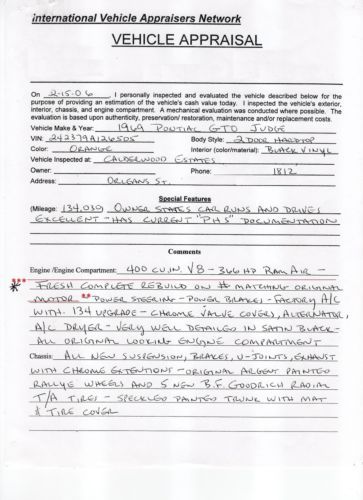 International Vehicle Appraisers Network
VEHICLE APPRAISAL
On 2-15-06, I personally inspected and evaluated the vehicle described below for the
purpose of providing an estimation of the vehicle's cash value today. I inspected the vehicle's exterior,
interior, chassis, and engine compartment. A mechanical evaluation was conducted where possible. The
evaluation is based upon authenticity, preservation/ restoration, maintenance and/or replacement costs.
Vehicle Make & Year: 1969 PONTIAC GTO JUDGE
VIN: 242379A126505 Body Style: 2 DOOR HARDTOP
Color: ORANGE Interior (color/material): BLACK VINYL
Vehicle Inspected at: CALDERWOOD ESTATES
Owner: Phone: 1812
Address: ORLEANS ST.
Special Features
(Mileage: 134,039) OWNER STATES CAR RUNS AND DRIVES
EXCELLENT - HAS CURRENT "PHS" DOCUMENTATION
Comments
Engine /Engine Compartment: 400 CU.IN. V8 - 366 HP RAM AIR -
* FRESH COMPLETE REBUILD ON # MATCHING ORIGINAL
MOTOR ** POWER STEERING - POWER BRAKES - FACTORY A/C
WITH 134 UPGRADE - CHROME VALVE COVERS, ALTERNATOR,
A/C DRYER - VERY WELL DETAILED IN SATIN BLACK -
ALL ORIGINAL LOOKING ENGINE COMPARTMENT
Chassis: ALL NEW SUSPENSION, BRAKES, U-JOINTS, EXHAUST
WITH CHROME EXTENTIONS - ORIGINAL ARGENT PAINTED
RALLYE WHEELS AND 5 NEW B.F. GOODRICH RADIAL
T/A TIRES - SPECKLED PAINTED TRUNK WITH MAT
& TIRE COVER